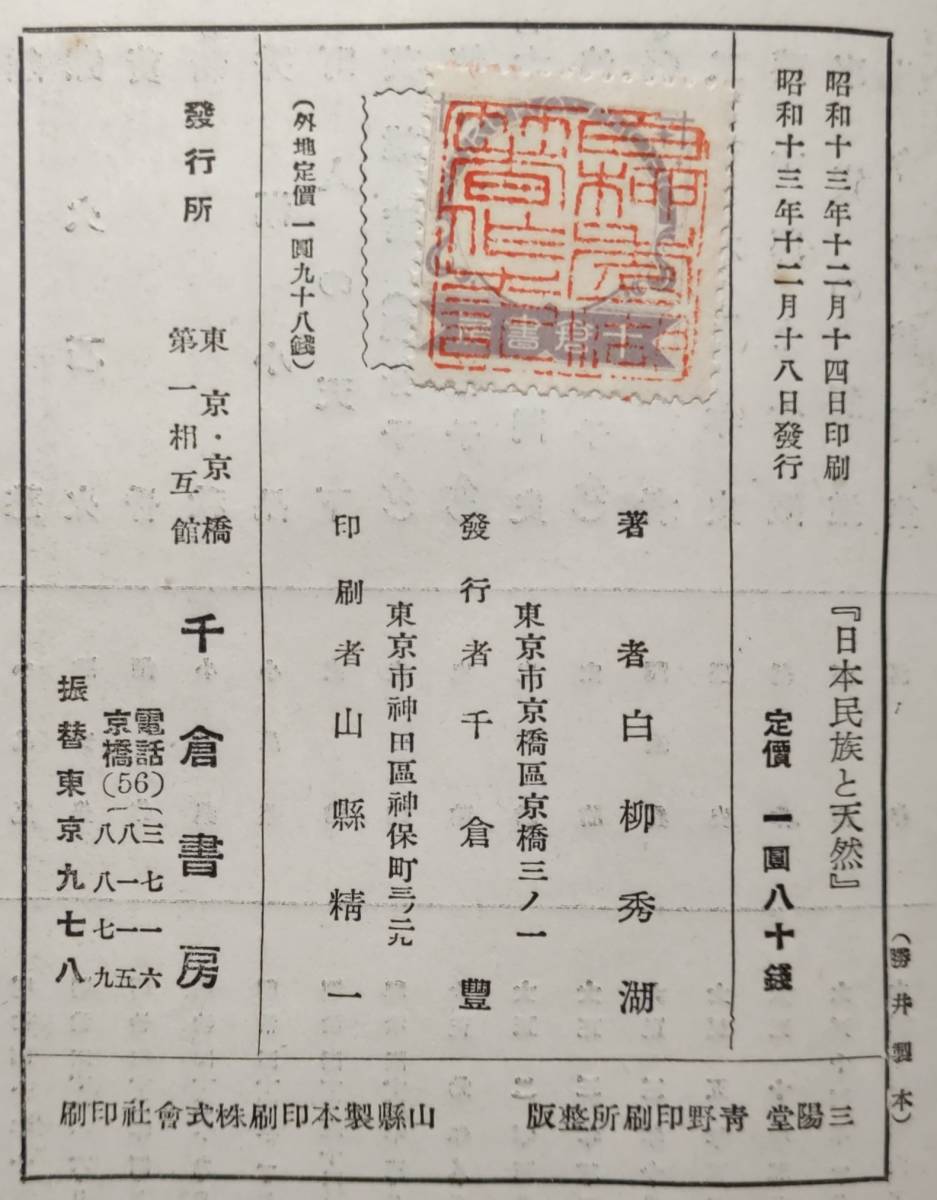 昭和十三年十二月十四日印刷
昭和十三年十二月十八日發行
『日本民族と天然』
定價 一圓八十錢
著者 白柳秀湖
東京市京橋區京橋三ノ一
發行者 千倉豐
東京市神田區神保町三ノ二九
印刷者 山縣精一
千倉書房
(外地定價一圓九十八錢)
發行所
東京・京橋
第一相互館
千倉書房
電話
京橋(56)
三七一六
八一一五
八八七九
振替東京九七八
(勝井製本)
三陽堂 靑野印刷所整版
山縣製本印刷株式會社印刷